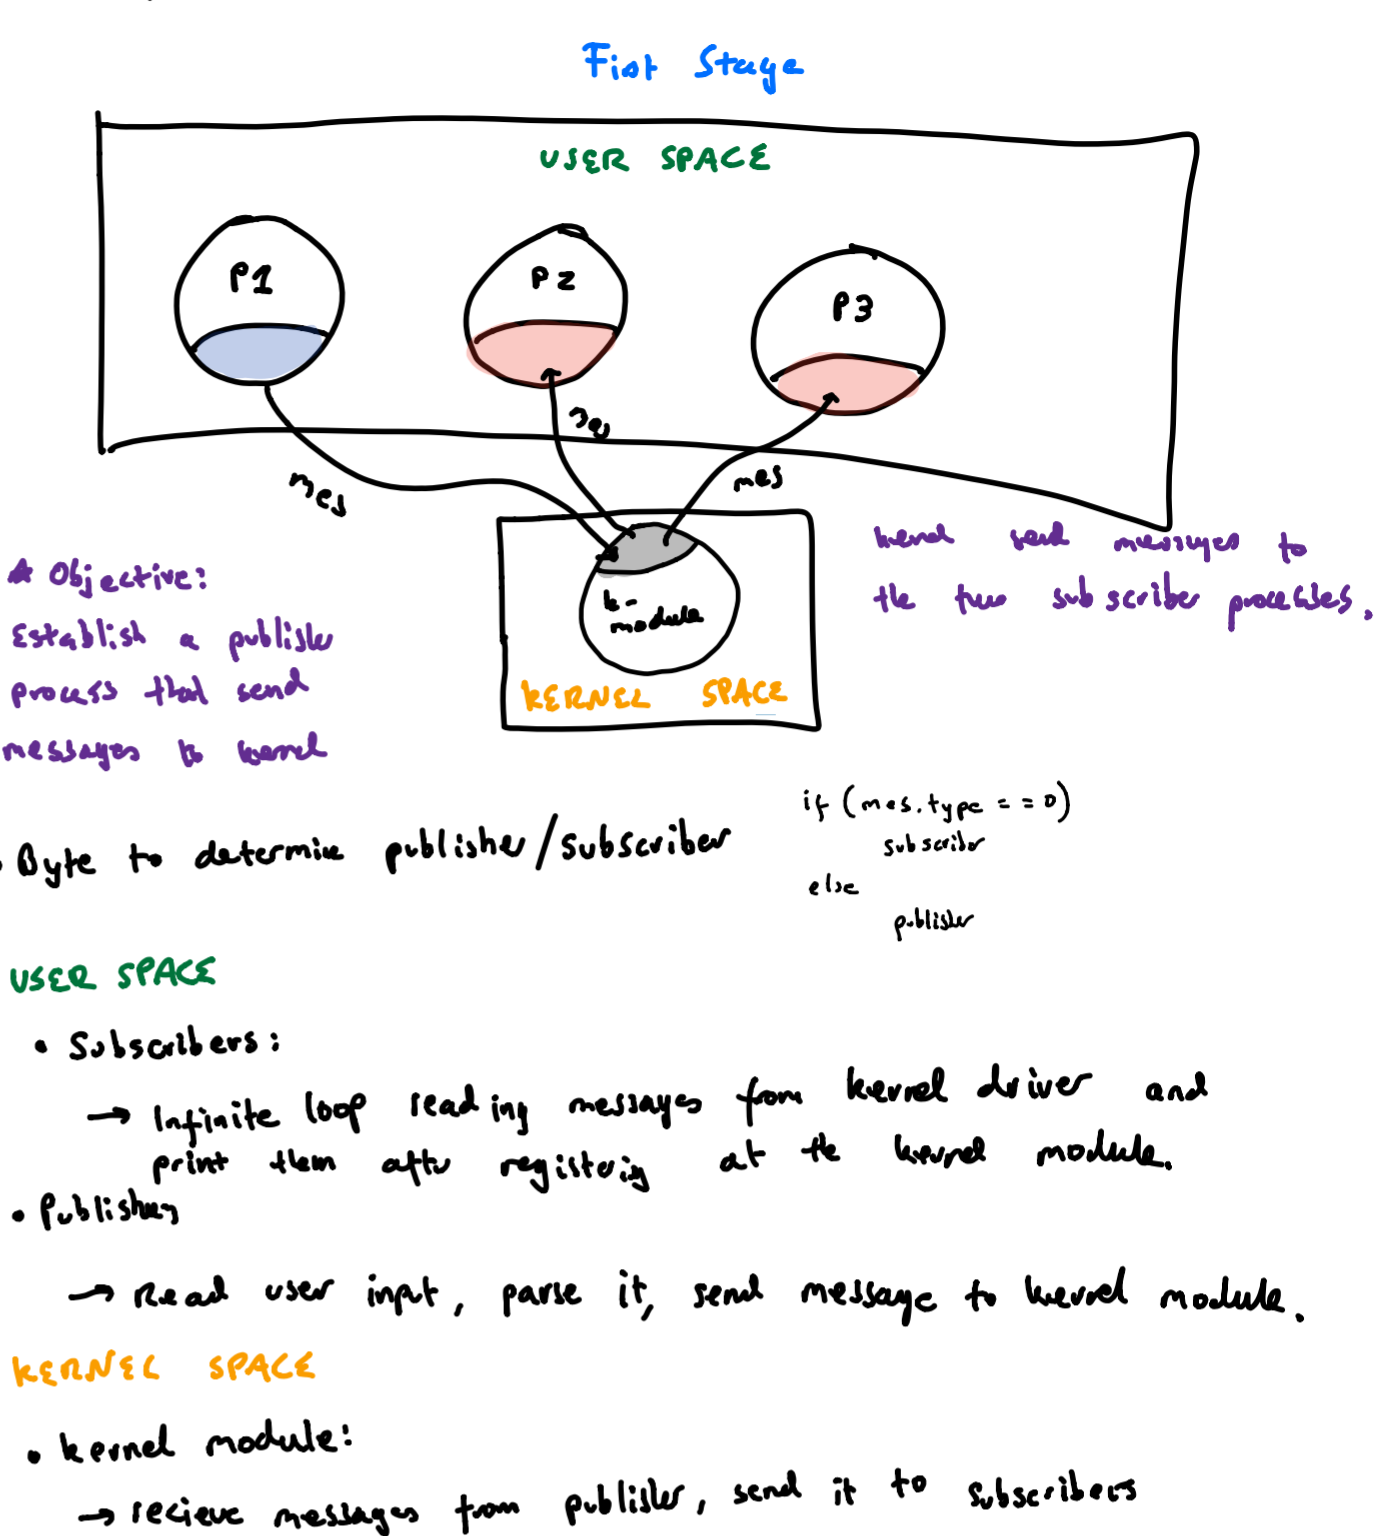 First Stage
USER SPACE
P1
P2
P3
mes
mes
mes
k-
module
KERNEL SPACE
* Objective:
Establish a publisher
process that send
messages to kernel
kernel send messages to
the two subscriber processes.
• Byte to determine publisher/subscriber
if (mes.type == 0)
subscriber
else
publisher
USER SPACE
• Subscribers:
→ Infinite loop reading messages from kernel driver and
print them after registering at the kernel module.
• Publishers
→ Read user input, parse it, send message to kernel module.
KERNEL SPACE
• kernel module:
→ recieve messages from publisher, send it to subscribers